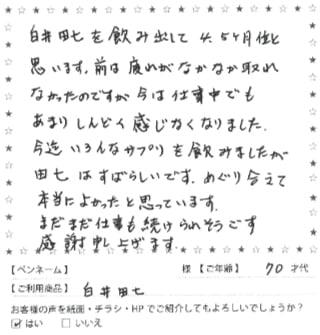 白井田七を飲み出して4.5ヶ月位と
思います。前は疲れがなかなか取れ
なかったのですが今は仕事中でも
あまりしんどく感じなくなりました。
今迄いろんなサプリを飲みましたが
田七はすばらしいです。めぐり会えて
本当によかったと思っています。
まだまだ仕事も続けられそうです
感謝申し上げます。
【ペンネーム】 様 【ご年齢】 70 才代
【ご利用商品】 白井田七
お客様の声を紙面・チラシ・HPでご紹介してもよろしいでしょうか?
☑はい □いいえ